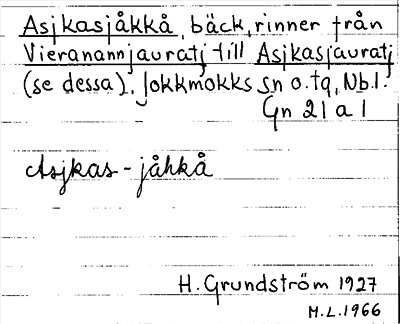 Asjkasjåkkå, bäck, rinner från
Vieranannjauratj till Asjkasjauratj
(se dessa), Jokkmokks sn o. tg, Nb.l.
Gn 21 a 1
Asjkas-jåhkå
H. Grundström 1927
M.L. 1966